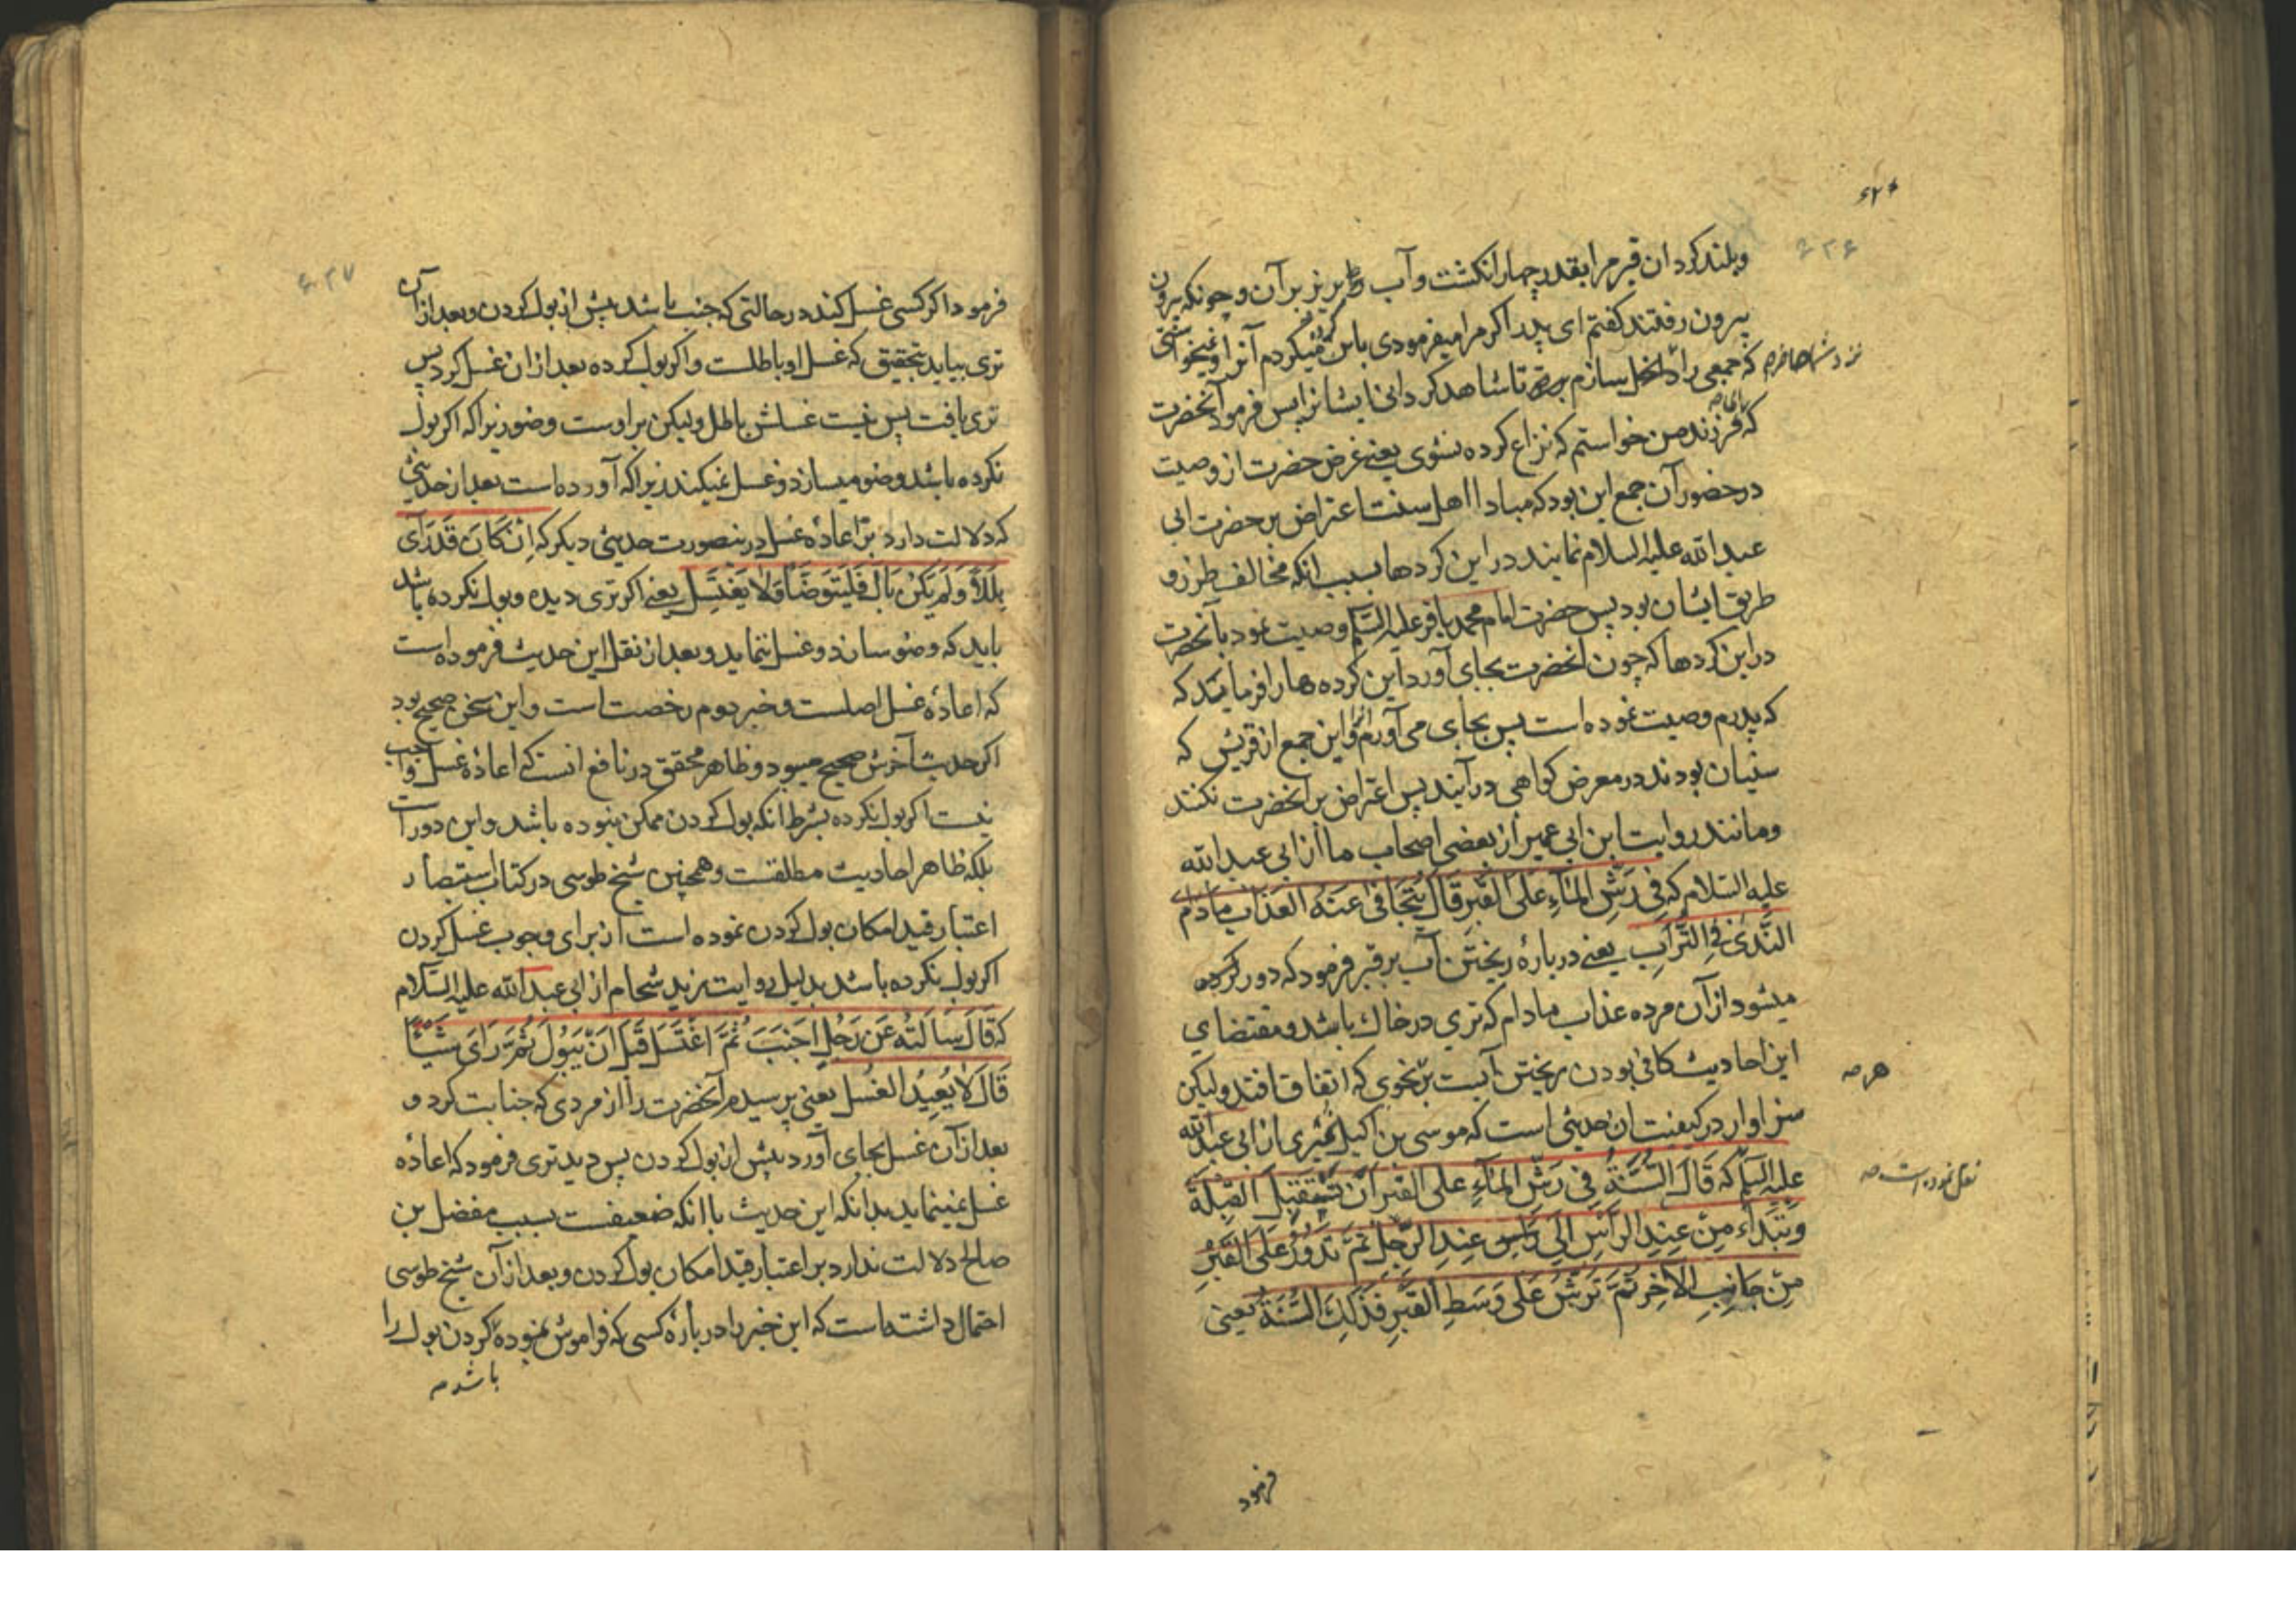 ۶۲۶
وبلند گردان قبر مرا بقدر چهار انکشت وآب بریز بر آن و چونکه بیرون
بیرون رفتند کفتم ای پدر اکر مرا میفرمودی باین میکردم آنرا ونمیخواستی
که جمعی را داخل سازم تا شاهد کردانی ایشانرا پس فرمود آنحضرت
نزد شما حاضر م
که فرزند من خواستم که نزاع کرده نشوی یعنی غرض حضرت از وصیت
با تو م
در حضور آن جمع این بود که مبادا اهل سنت اعتراض بر حضرت ابی
عبدالله علیه السلام نمایند در این کردها بسبب انکه مخالف طرز و
طریق ایشان بود پس حضرت امام محمد باقر علیه السلام وصیت نمود بآنحضرت
در این کردها که چون انحضرت بجای آورد این کرده ها را فرمایند که
که پدرم وصیت نموده است پس بجای می آورم واین جمع از قریش که
سنیان بودند در معرض کواهی در آیند پس اعتراض بر انحضرت نکنند
ومانند روایت ابن ابی عمیر از بعضی اصحاب ما از ابی عبدالله
علیه السلام که فِی رَشِّ الْمَآءِ عَلَی القَبْرِ قَالَ یُتَجَافیٰ عَنْهُ العَذَابُ مَادَامَ
النَّدَیٰ فِی التُّرَابِ یعنی درباره ریختن آب بر قبر فرمود که دور کرده
میشود از آن مرده عذاب مادام که تری در خاک باشد و مقتضای
این احادیث کافی بودن ریختن آبست بر نحوی که اتفاق افتد ولیکن
هر م
سزاوار در کیفیت ان حدیثی است که موسی بن اکیل نمیری از ابی عبدالله
علیه السلام که قَالَ السُّنَّةُ فِی رَشِّ الْمَآءِ عَلَی القَبْرِ اَنْ تَسْتَقْبِلَ القِبْلَةَ
نقل نموده است م
وَتَبْدَأَ مِنْ عِنْدِ الرَّأْسِ اِلَی عِنْدِ الرِّجْلِ ثُمَّ تَدُوْرُ عَلَی القَبْرِ
مِنْ جَانِبِ الآخِرِ ثُمَّ تَرُشُّ عَلَی وَسَطِ القَبْرِ فَذٰلِکَ السُّنَّةُ یعنی
فرمود
۶۲۷
فرمود اکر کسی غسل کند در حالتی که جنب باشد پیش از بول کردن و بعد از آن
تری بیاید بتحقیق که غسل او باطلست واکر بول کرده بعد از ان غسل کرد پس
تری یافت پس نیست غسلش باطل ولیکن بر اوست وضو زیرا که اکر بول
نکرده باشد وضو میسازد وغسل نمیکند زیرا که آورده است بعد از حدیثی
که دلالت دارد بر اعادهٔ غسل درینصورت حدیثی دیکر که اِنْ کَانَ قَدْ رَآی
بَلَلاً وَلَمْ یَکُنْ بَالَ فَلْیَتَوَضَّأْ وَلَا یَغْتَسِلْ یعنی اکر تری دیده وبول نکرده باشد
باید که وضو سازد وغسل ننماید وبعد از نقل این حدیث فرموده است
که اعادهٔ غسل اصلست وخبر دوم رخصت است واین سخن صحیح بود
اکر حدیث آخرش صحیح میبود وظاهر محقق در نافع انست که اعادهٔ غسل واجب
نیست اکر بول نکرده بشرط انکه بول کردن ممکن نبوده باشد واین دور است
بلکه ظاهر احادیث مطلقست وهمچنین شیخ طوسی در کتاب استبصار
اعتبار قید امکان بول کردن نموده است از برای وجوب غسل کردن
اکر بول نکرده باشد بدلیل روایت زید شحام از ابی عبدالله علیه السلام
که قَالَ سَاَلْتُهُ عَنْ رَجُلٍ اَجْنَبَ ثُمَّ اغْتَسَلَ قَبْلَ اَنْ یَبُوْلَ ثُمَّ رَایَ شَیْئًا
قَالَ لَا یُعِیْدُ الغُسْلَ یعنی پرسیدم آنحضرت را از مردی که جنابت کرد و
بعد از آن غسل بجای آورد پیش از بول کردن پس دید تری فرمود که اعاده
غسل نمینماید بدانکه این حدیث با انکه ضعیفست بسبب مفضل بن
صالح دلالت ندارد بر اعتبار قید امکان بول کردن وبعد از آن شیخ طوسی
احتمال داشته است که این خبر را درباره کسی که فراموش نموده کردن بول را
باشد م